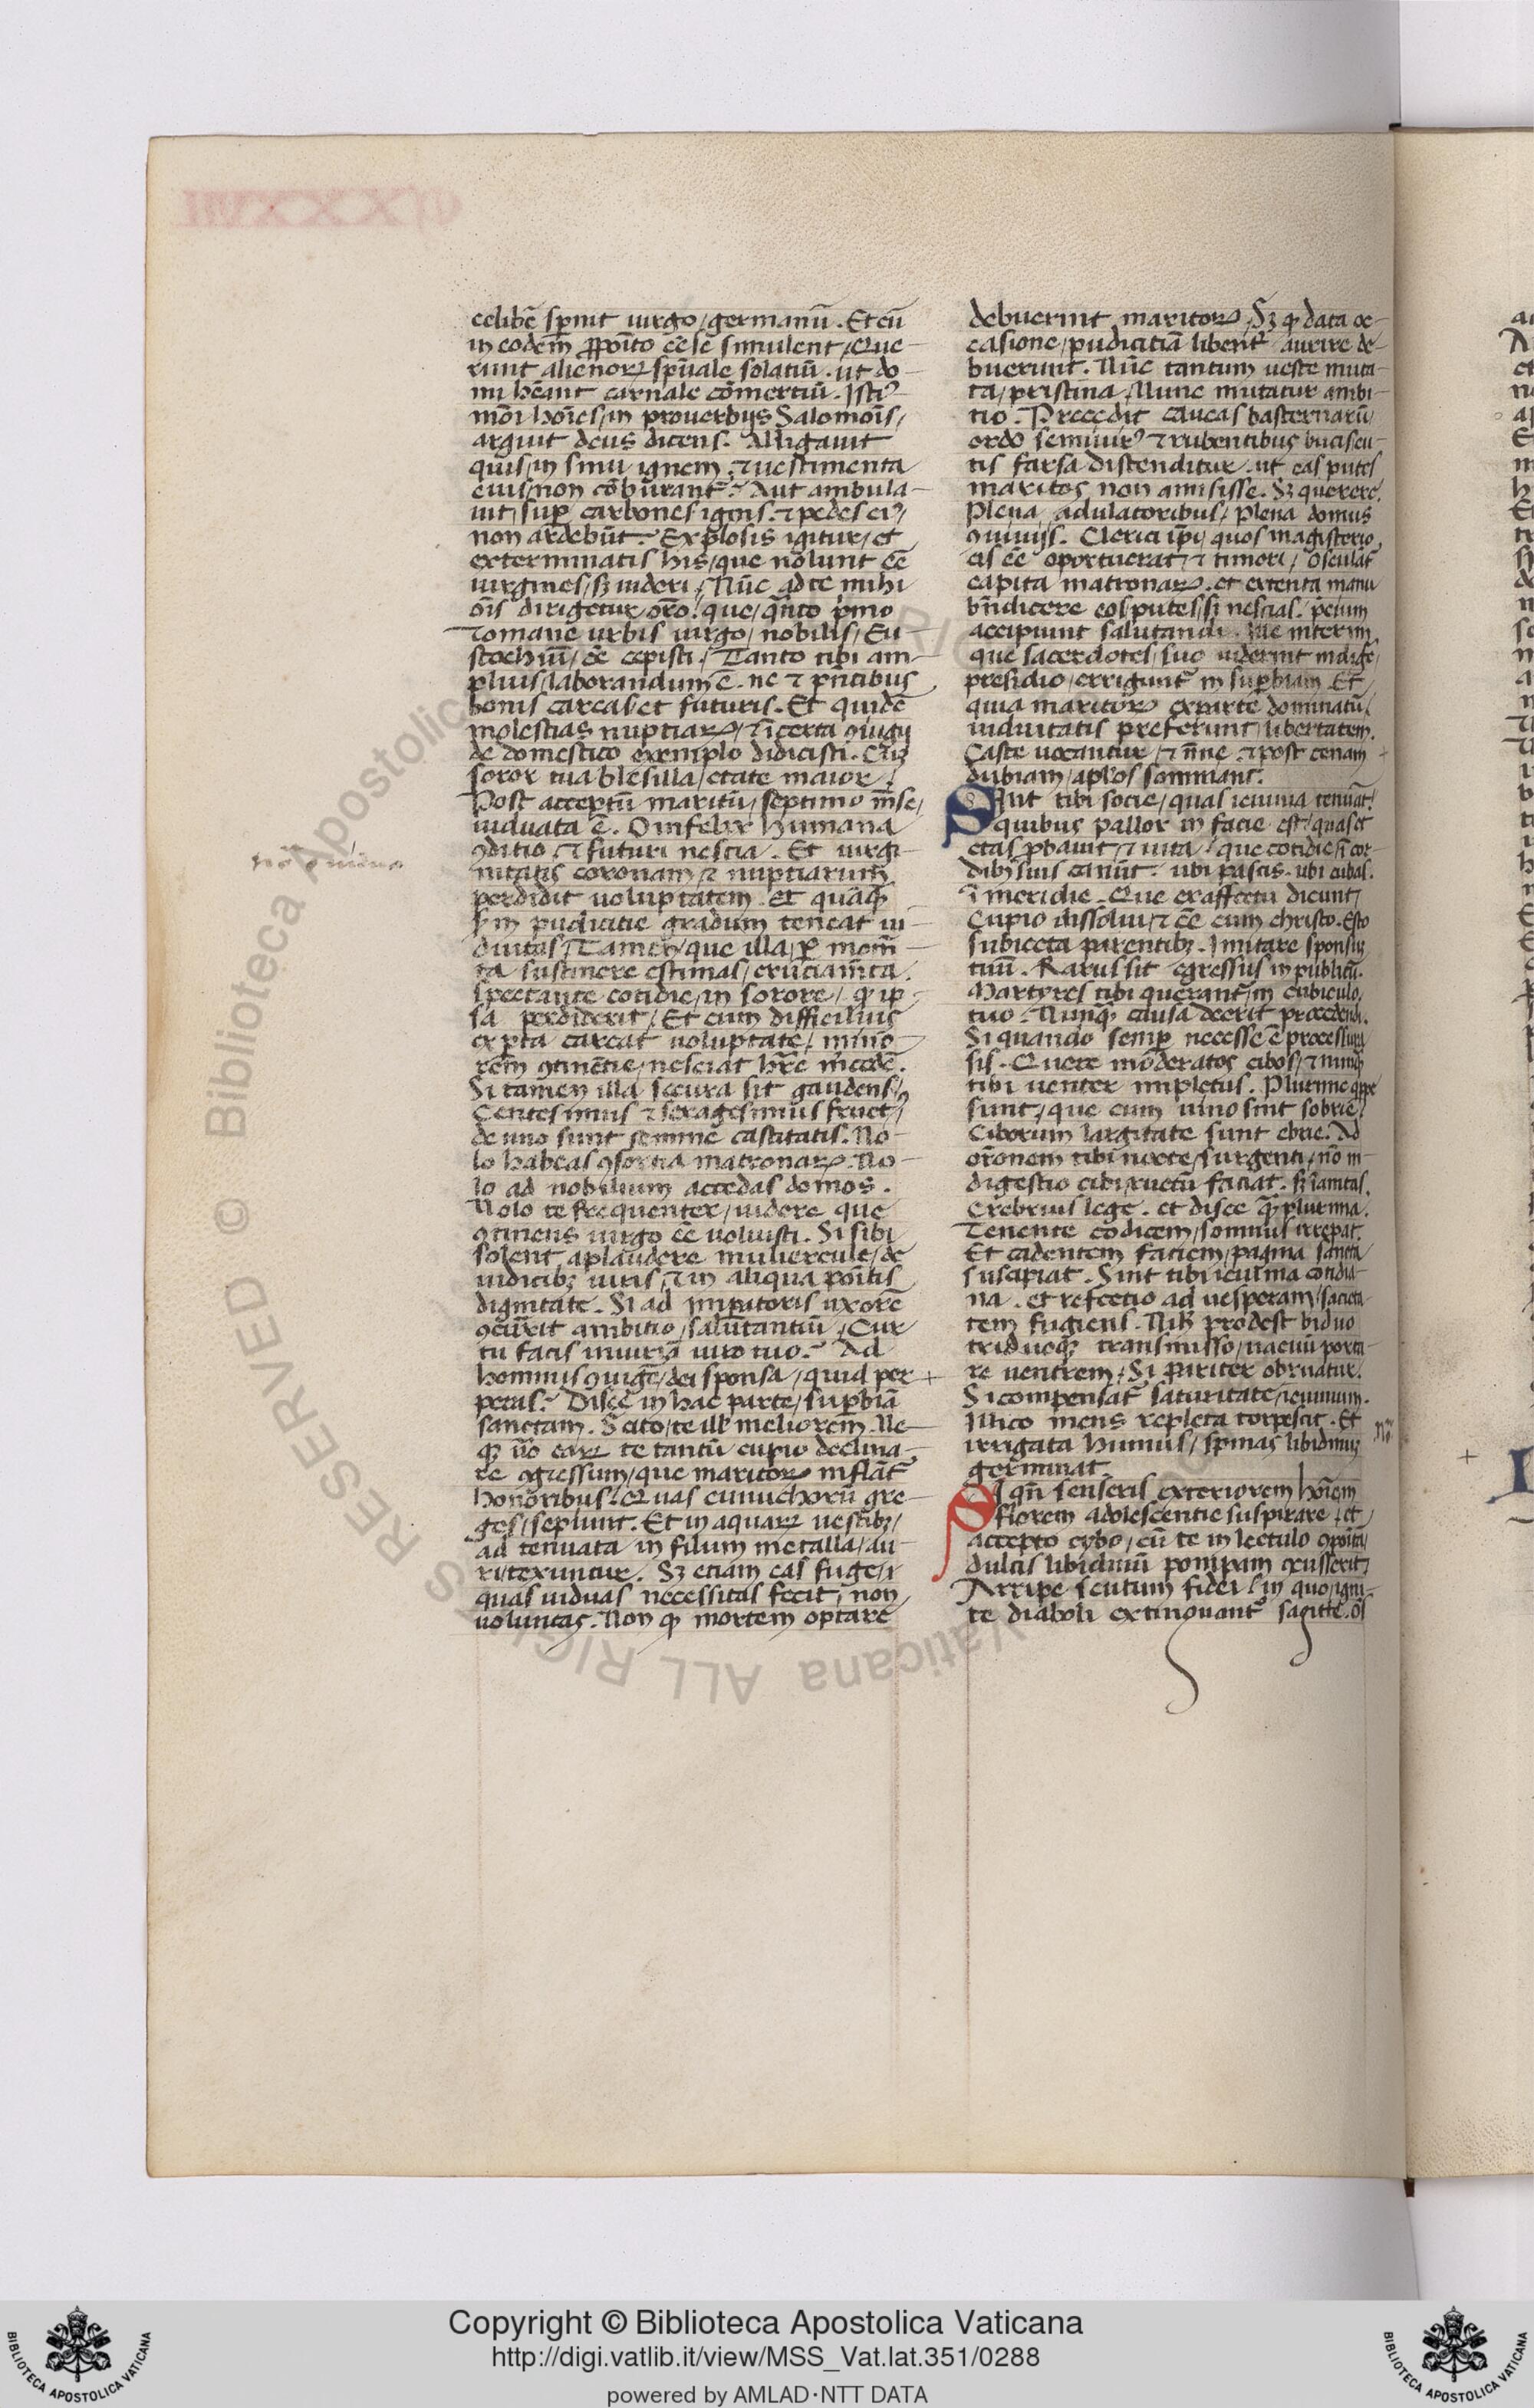 celibē sp̄nit uirgo/germanū. Et cū
in eodem ꝓpoīto eēse simulent/Que
runt alienoꝝ sp̄uale solatiū. ut do-
mi hēant carnale cōmertiū. Isti⁹
mōi hoīes/in prouerbijs Salomoīs/
arguit deus dicens. Alligauit
quis/in sinu ignem. ⁊ uestimenta
eius/non cōburant᷑? Aut ambula-
uit/suꝑ carbones ignis. ⁊ pedes ei⁹/
non ardebūt? Explosis igitur/et
exterminatis his/que nolunt eē
uirgines/sꝫ uideri/Nūc ad te mihi
oīs dirigetur orō. que/qᷓnto pͥmo
romane urbis uirgo/nobilis/Eu-
stochiū/eē cepisti/Tanto tibi am-
plius/laborandum ē. ne ⁊ pn̄tibus
bonis careas/et futuris. Et quidē
molestias nuptiaꝝ/⁊ īcerta ꝯiugij
de domestico exemplo didicisti. Cuꝫ
soror tua blesilla/etate maior/
Post acceptū maritū/septimo m̄se/
uiduata ē. O infelix humana
ꝯditio/⁊ futuri nescia. Et uirgi-
nitatis coronam/⁊ nuptiarum
perdidit uoluptatem. et quāqꝫ
sm̄ pudicitie gradum teneat ui-
duitas/Tamen/que illa/ꝑ mom̄-
ta sustinere estimas/cruciam̄ta.
spectante cotidie/in sorore/ꝙ ip-
sa perdiderit/Et cum difficilius
exp̄ta careat uoluptate/mino-
rem ꝯtinētie/nesciat hr̄e m̄cedē.
Si tamen illa secura sit gaudens/
Centesimus ⁊ sexagesimus fruct⁹/
de uno sunt semine castitatis. No-
lo habeas ꝯsortia matronaꝝ. No-
lo ad nobilium accedas domos.
Nolo te frequenter/uidere que
ꝯtinens uirgo eē uoluisti. Si sibi
solent aplaudere muliercule/de
iudicibꝫ uiris/⁊ in aliqua poītis
dignitate. Si ad imꝑatoris uxorē
ꝯcurrit ambitio/salutantiū/Cur
tu facis iniuriā uiro tuo? Ad
hominis ꝯiugē/dei sponsa/quid per-
peras? Disce in hac parte/suꝑbiā
sanctam. Scito/te illis meliorem. Ne-
qꝫ u̅o eaꝝ te tantū cupio declina-
re ꝯgressum/que maritoꝝ inflāt᷑
honoribus. Quas eunuchorū gre-
ges/sepiunt. Et in aquaꝝ uestibꝫ/
ad tenuata in filum metalla/au-
ri/texuntur. Sꝫ etiam eas fuge/
quas uiduas necessitas fecit/non
uoluntas. Non ꝙ mortem optare
debuerint maritoꝝ/Sꝫ ꝙ data oc-
casione/pudicitiā libent᷑ aurire de-
buerunt. Nūc tantum ueste muta-
ta/pristina/Nunc mutatur ambi-
tio. Precedit caueas basternarū/
ordo semiuir⁹ ⁊ rubentibus buciscu-
tis farsa distenditur. ut eas putes
maritos non amisisse. Sꝫ querere.
Plena adulatoribus/plena domus
ꝯuiuijs. Clerici ip̄i/quos magisterio
eis eē oportuerat/⁊ timori/osculāt᷑
capita matronaꝝ. et extenta manu
bn̄dicere eos/putes/si nescias. p̄cium
accipiunt salutandi. Ille interim
que sacerdotes/suo uiderint indige/
presidio/erigunt᷑ in suꝑbiam. Et
quia maritoꝝ experte dominatū/
uiduitatis preferunt/libertatem.
Caste uocantur/⁊ n̄ne. ⁊ post cenam
dubiam/ap̄los somniant.
Sint tibi socie/quas ieiunia tenuāt.
quibus pallor in facie est/quas et
etas ꝓbauit/⁊ uita. que cotidie/ī cor-
dibꝫ suis canūt. ubi pascis. ubi cubas.
ī meridie. Que ex affectu dicunt/
Cupio dissolui/⁊ eē cum christo. Esto
subiecta parentibꝫ. Imitare sponsuꝫ
tuū. Rarus sit egressus in publicū.
Martyres tibi querant᷑/in cubiculo
tuo. Nunqꝫ causa deerit procedendi.
Si quando semꝑ necesse ē processura
sis. Quere moderatos cibos/⁊ nunqꝫ
tibi uenter impletus. Plurime qͥppe
sunt/que cum uino sint sobrie/
Ciborum largitate sunt ebrie. Ad
orōnem tibi nocte/surgenti/nō in-
digestio cibi/ructū faciat. sꝫ īanitas.
Crebrius lege. et disce qᷓꝫ plurima.
Tenente codicem/somnus irrepat.
Et cadentem faciem/pagina sancta
suscipiat. Sint tibi ieiunia cotidia-
na. et refectio ad uesperam/sacieta-
tem fugiens. Nihil prodest biduo
triduoqꝫ transmisso/uacuū porta-
re uentrem/Si pariter obruatur.
Si compensat᷑ saturitate/ieiunium.
Illico mens repleta torpescit. Et
irrigata humus/spinas libidinuꝫ
germinat.
Si qn̄ senseris exteriorem hoīem
florem adolescentie suspirare/et
accepto cybo/cū te in lectulo ꝯpoītā
dulcis libidinū pompam ꝯcusserit/
Arripe scutum fidei/in quo/igni-
te diaboli extinguant᷑ sagitte. Oēs
Copyright © Biblioteca Apostolica Vaticana
http://digi.vatlib.it/view/MSS_Vat.lat.351/0288
powered by AMLAD·NTT DATA
BIBLIOTECA APOSTOLICA VATICANA
BIBLIOTECA APOSTOLICA VATICANA